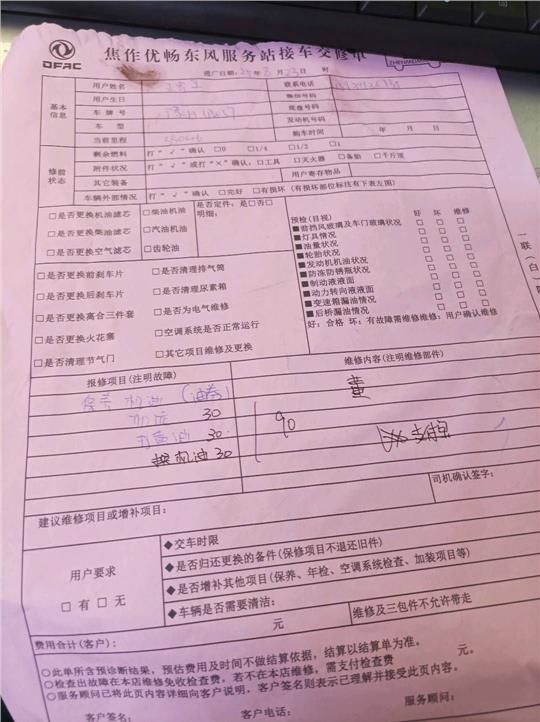 DFAC
焦作优畅东风服务站接车交修单
进厂日期:25年 月23日 时
基本信息
用户姓名
联系电话
用户生日
微信号码
车牌号
底盘号码
车型
发动机号码
当前里程
购车时间 年 月 日
修前状态
剩余燃料 打“√”确认 □0 □1/4 □1/2 □1
附件状况 打“√”或打“×”确认:□工具 □灭火器 □备胎 □千斤顶
其它装备 用户寄存物品
车辆外部情况 打“√”确认 □完好 □有损坏(有损坏部位标注有下表左图)
□是否更换机油滤芯 □柴油机油
□是否更换柴油滤芯 □汽油机油
□是否更换空气滤芯 □齿轮油
是否定件:是□否□
明细:
□是否更换前刹车片 □是否清理排气筒
□是否更换后刹车片 □是否清理尿素箱
□是否更换离合三件套 □是否为电气维修
□是否更换火花塞 □空调系统是否正常运行
□是否清理节气门 □其它项目维修及更换
预检(目视) 好 坏 维修
■前挡风玻璃及车门玻璃状况 □ □ □
■灯具情况 □ □ □
■油量状况 □ □ □
■轮胎状况 □ □ □
■发动机机油情况 □ □ □
■防冻防锈瓶状况 □ □ □
■制动液液面 □ □ □
■动力转向液液面 □ □ □
■变速箱漏油情况 □ □ □
■后桥漏油情况 □ □ □
好:合格 坏:有故障需维修维修:用户确认维修
一联(白
报修项目(注明故障) 维修内容(注明维修部件)
保养 机油
30
30
换机油 30
90
建议维修项目或增补项目:
司机确认签字:
用户要求
□有 □无
◆交车时限
◆是否归还更换的备件(保修项目不退还旧件)
◆是否增补其他项目(保养、年检、空调系统检查、加装项目等)
◆车辆是否需要清洁: 维修及三包件不允许带走
费用合计(客户): 元
○此单所含预诊断结果,预估费用及时间不做结算依据,结算以结算单为准。
○检查出故障在本店维修免收检查费,若不在本店维修,需支付检查费 元。
○服务顾问已将此页内容详细向客户说明,客户签名则表示已理解并接受此页内容。
客户签名: 客户电话: 服务顾问: